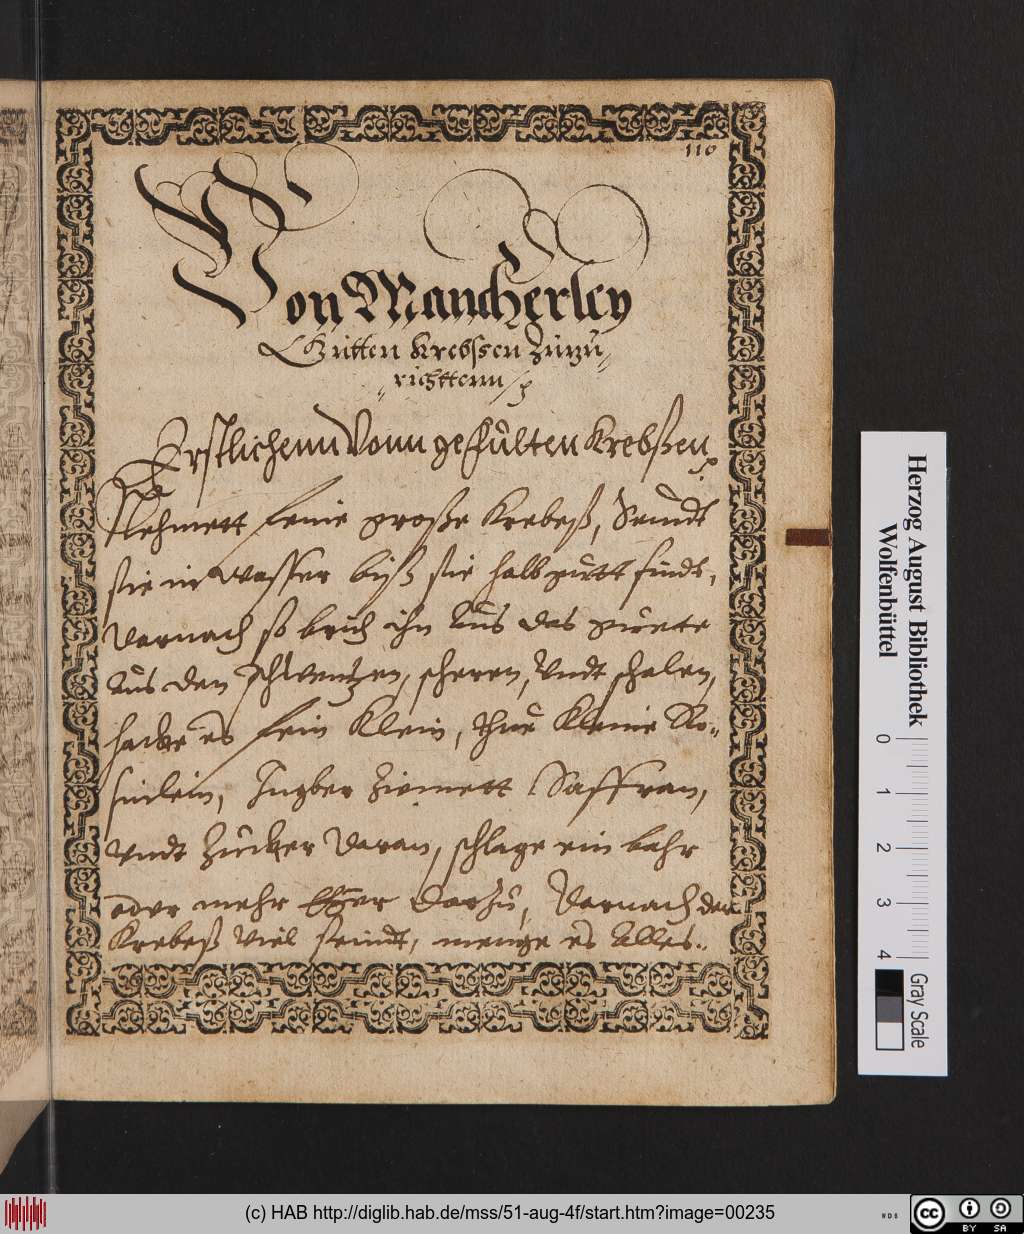 110
Von Mancherley
Gutten Krebssen Zuzu„
„richttenn
Erstlichenn Vonn gefulten Krebßen
Nehmett feine große Krebeß, Seudt
sie in Wasser biß sie halb gutt sindt,
darnach so brich ihn aus das guete
aus den schwentzen, scheren, Undt schalen,
hacke es fein Klein, thue Kleine Ro„
sinlein, Ingber Zimett Saffran,
undt Zucker daran, schlage ein bahr
oder mehr Eyer darzu, darnach der
Krebeß viel seindt, menge es Alles..
Herzog August Bibliothek
Wolfenbüttel
0 1 2 3 4
Gray Scale
(c) HAB http://diglib.hab.de/mss/51-aug-4f/start.htm?image=00235
WDB
cc BY SA